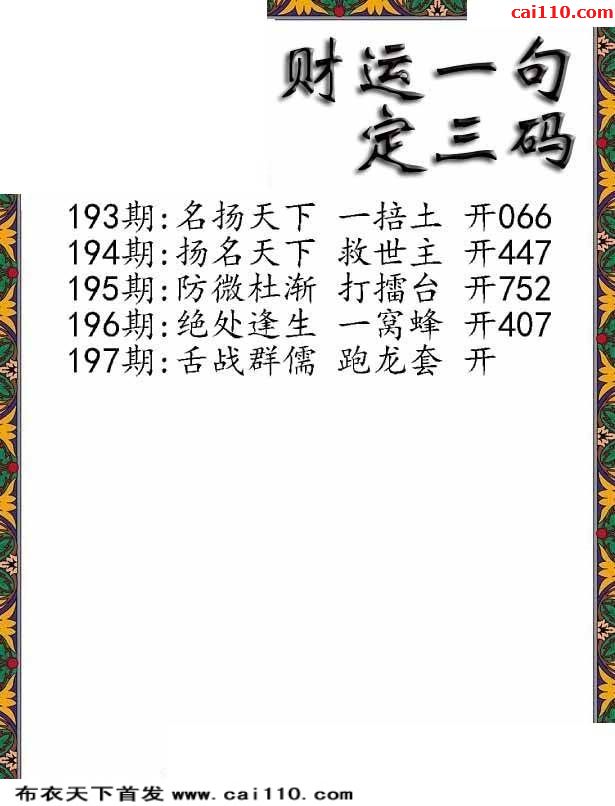 cai110.com
财运一句
定三码
193期:名扬天下 一掊土 开066
194期:扬名天下 救世主 开447
195期:防微杜渐 打擂台 开752
196期:绝处逢生 一窝蜂 开407
197期:舌战群儒 跑龙套 开
布衣天下首发 www.cai110.com